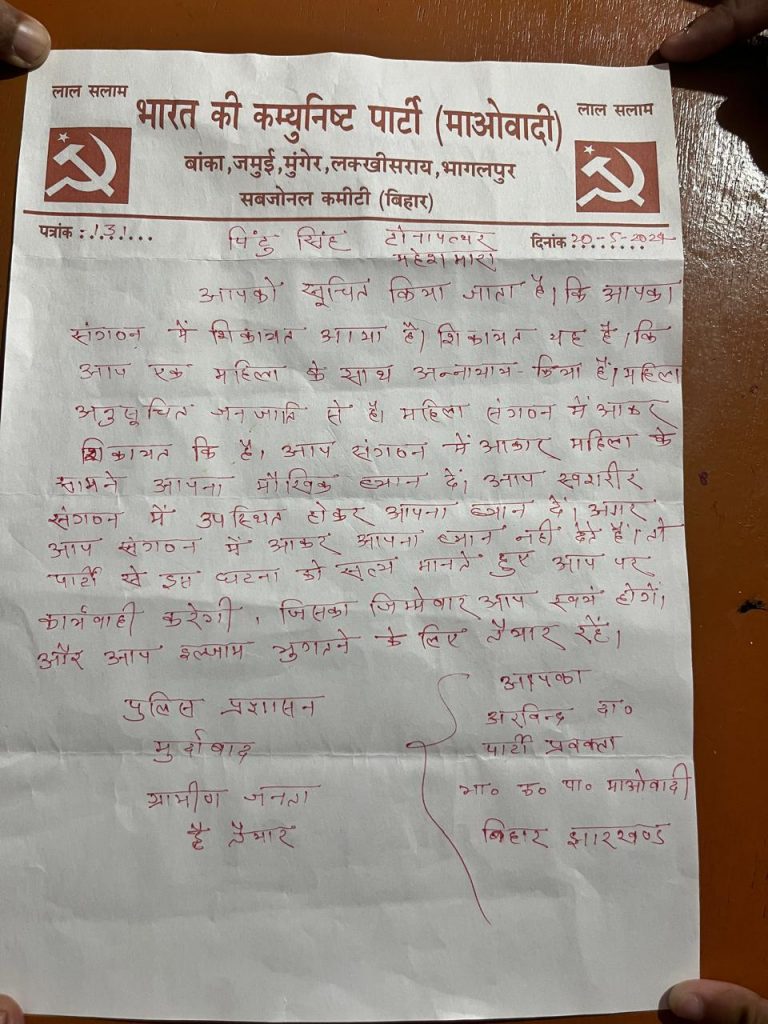 लाल सलाम
लाल सलाम
भारत की कम्युनिष्ट पार्टी (माओवादी)
बांका,जमुई,मुंगेर,लक्खीसराय,भागलपुर
सबजोनल कमीटी (बिहार)
पत्रांक : 131
दिनांक 20-5-2024
पिंटु सिंह टोनापत्थर
आपको सूचित किया जाता है। कि आपका
संगठन में शिकायत आया है। शिकायत यह है, कि
आप एक महिला के साथ अन्नायाय किया है। महिला
अनुसूचित जनजाति से है। महिला संगठन में आकर
शिकायत कि है, आप संगठन में आकार महिला के
सामने आपना मौखिक ब्यान दें। आप स्वशरीर
संगठन में उपस्थित होकर आपना ब्यान दें। अगर
आप संगठन में आकर आपना ब्यान नहीं देते हैं। तो
पार्टी से इस घटना को सत्य मानते हुए आप पर
कार्यवाही करेगी, जिसका जिम्मेवार आप स्वयं होगें।
और आप इल्जाम भुगतने के लिए तैयार रहें।
आपका
अरविन्द दा०
पार्टी प्रवक्ता
भा० क० पा० माओवादी
बिहार झारखण्ड
पुलिस प्रशासन
मुर्दाबाद
ग्रामीण जनता
है तैयार